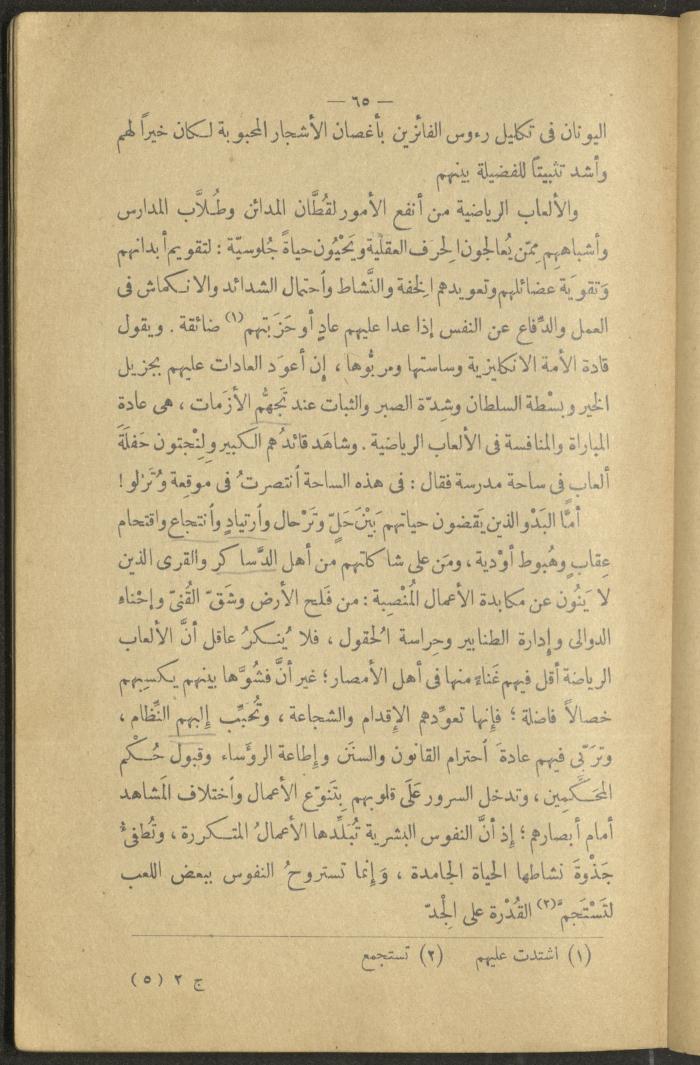 — ٦٥ —
اليونان فى تكليل رءوس الفائزين بأغصان الأشجار المحبوبة لكان خيراً لهم
وأشد تثبيتاً للفضيلة بينهم
والألعاب الرياضية من أنفع الأمور لقُطَّان المدائن وطُلاَّب المدارس
وأشباههم ممّن يُعالجون الحِرَف العقلية ويَحْيَون حياةً جُلوسيّة : لتقويم أبدانهم
وَتقويَة عضائلهم وتعويدهم الخِفة والنَّشاط واحتمال الشدائد والانكماش فى
العمل والدِّفاع عن النفس إذا عدا عليهم عادٍ أو حَزَبَتهم (١) ضائقة . ويقول
قادة الأمة الانكليزية وساستها ومربُّوها ، إن أعوَد العادات عليهم بجزيل
الخير وبسْطة السلطان وشِدّة الصبر والثبات عند تَجَهُّم الأزَمات ، هى عادة
المباراة والمنافسة فى الألعاب الرياضية . وشاهَد قائدُهم الكبير ولِنْجتون حَفلَةَ
ألعاب فى ساحة مدرسة فقال : فى هذه الساحة انتصرتُ فى موقعة وُتَرْلو !
أمَّا البَدْو الذين يَقْضون حياتهم بَيْنَ حَلّ وتَرْحال وارتيادٍ وانتجاع واقتحام
عِقابٍ وهُبوط أوْدية ، ومَن على شاكلتهم من أهل الدَّساكر والقرى الذين
لا يَنُون عن مكابدة الأعمال المُنْصِبة : من فَلح الأرض وشَقّ القُنىّ وإحْناء
الدوالى وإدارة الطنابير وحِراسة الحُقول ، فلا يُنكرُ عاقل أنَّ الألعاب
الرياضة أقل فيهم غَناءً منها فى أهل الأمصار ؛ غير أنَّ فشُوَّها بينهم يكسبهم
خصالاً فاضلة ؛ فإنها تعوِّدهم الإقدام والشجاعة ، وتُحَبِّب إليهم النِّظام ،
وتربّى فيهم عادةَ احترام القانون والسنَن وإطاعة الرؤَساء وقبولَ حُكْم
المحَكَّمين ، وتدخل السرور عَلَى قلوبهم بِتَنوّع الأعمال واختلاف المَشاهد
أمام أبصارهم ؛ إذ أنَّ النفوس البشرية تُبَلِّدها الأعمالُ المتكررة ، وتُطفئُ
جَذْوةَ نشاطها الحياة الجامدة ، وَإنما تستروحُ النفوس ببعض اللعب
لتَسْتَجمّ (٢) القُدْرة على الْجِدّ
(١) اشتدت عليهم (٢) تستجمع
ج ٢ (٥)